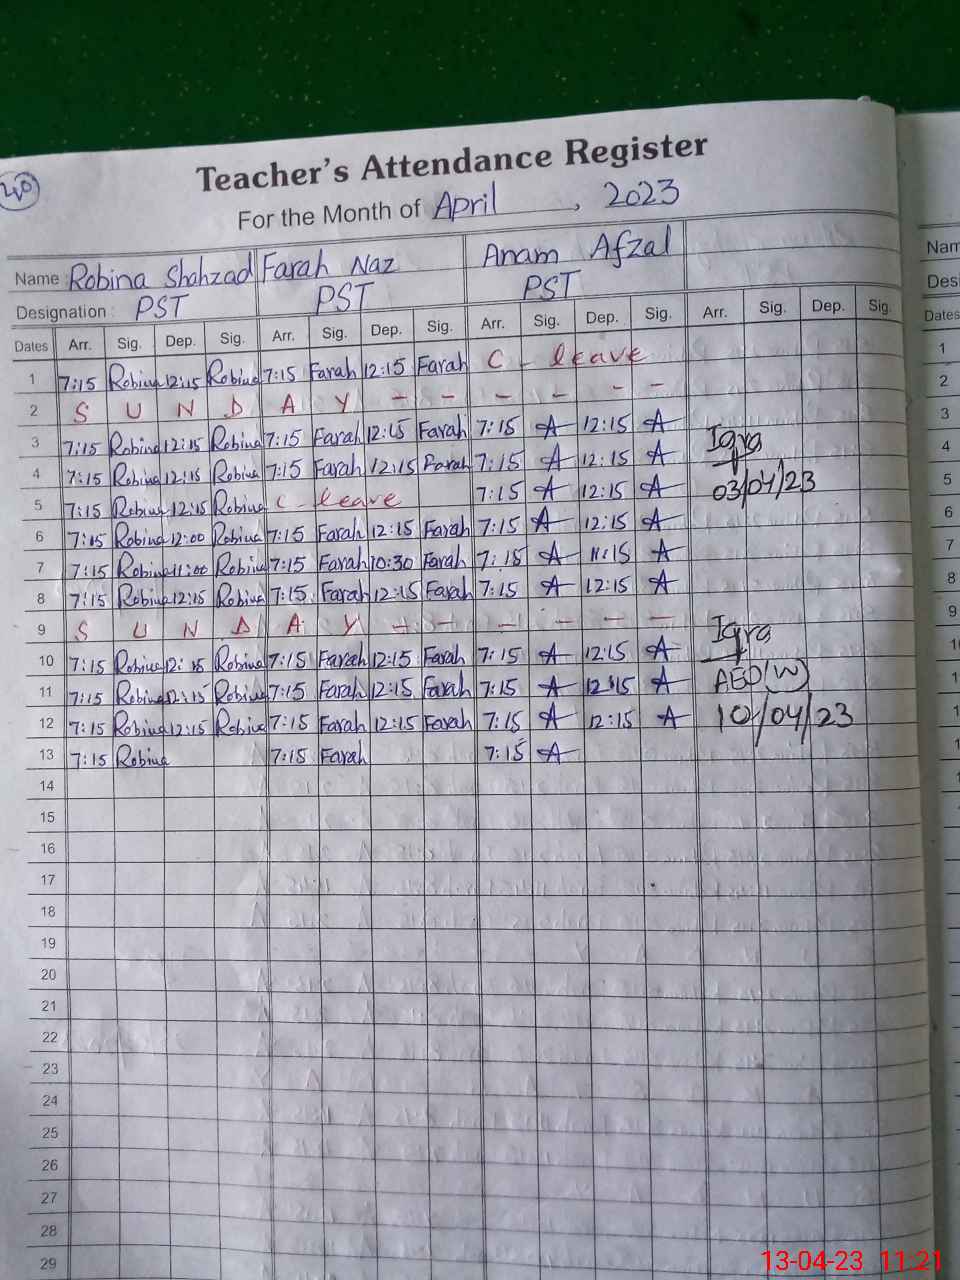 40
Teacher's Attendance Register
For the Month of April, 2023
Name : Robina Shahzad Farah Naz Anam Afzal
Designation : PST PST PST
Dates Arr. Sig. Dep. Sig. Arr. Sig. Dep. Sig. Arr. Sig. Dep. Sig. Arr. Sig. Dep. Sig.
1 7:15 Robina 12:15 Robina 7:15 Farah 12:15 Farah C - leave
2 S U N D A Y - - - - - -
3 7:15 Robina 12:15 Robina 7:15 Farah 12:15 Farah 7:15 A 12:15 A
4 7:15 Robina 12:15 Robina 7:15 Farah 12:15 Farah 7:15 A 12:15 A Iqra
5 7:15 Robina 12:15 Robina C - leave 7:15 A 12:15 A 03/04/23
6 7:15 Robina 12:00 Robina 7:15 Farah 12:15 Farah 7:15 A 12:15 A
7 7:15 Robina 11:00 Robina 7:15 Farah 10:30 Farah 7:15 A 11:15 A
8 7:15 Robina 12:15 Robina 7:15 Farah 12:15 Farah 7:15 A 12:15 A
9 S U N D A Y - - - - - -
10 7:15 Robina 12:15 Robina 7:15 Farah 12:15 Farah 7:15 A 12:15 A Iqra
11 7:15 Robina 12:15 Robina 7:15 Farah 12:15 Farah 7:15 A 12:15 A AEO(W)
12 7:15 Robina 12:15 Robina 7:15 Farah 12:15 Farah 7:15 A 12:15 A 10/04/23
13 7:15 Robina 7:15 Farah 7:15 A
14
15
16
17
18
19
20
21
22
23
24
25
26
27
28
29
Nam
Desi
Dates
1
2
3
4
5
6
7
8
9
13-04-23 11:21